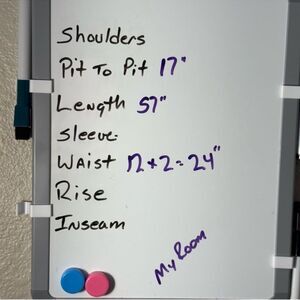 Shoulders
Pit To Pit 17"
Length 57"
Sleeve
Waist 12 x 2 = 24"
Rise
Inseam
My Room